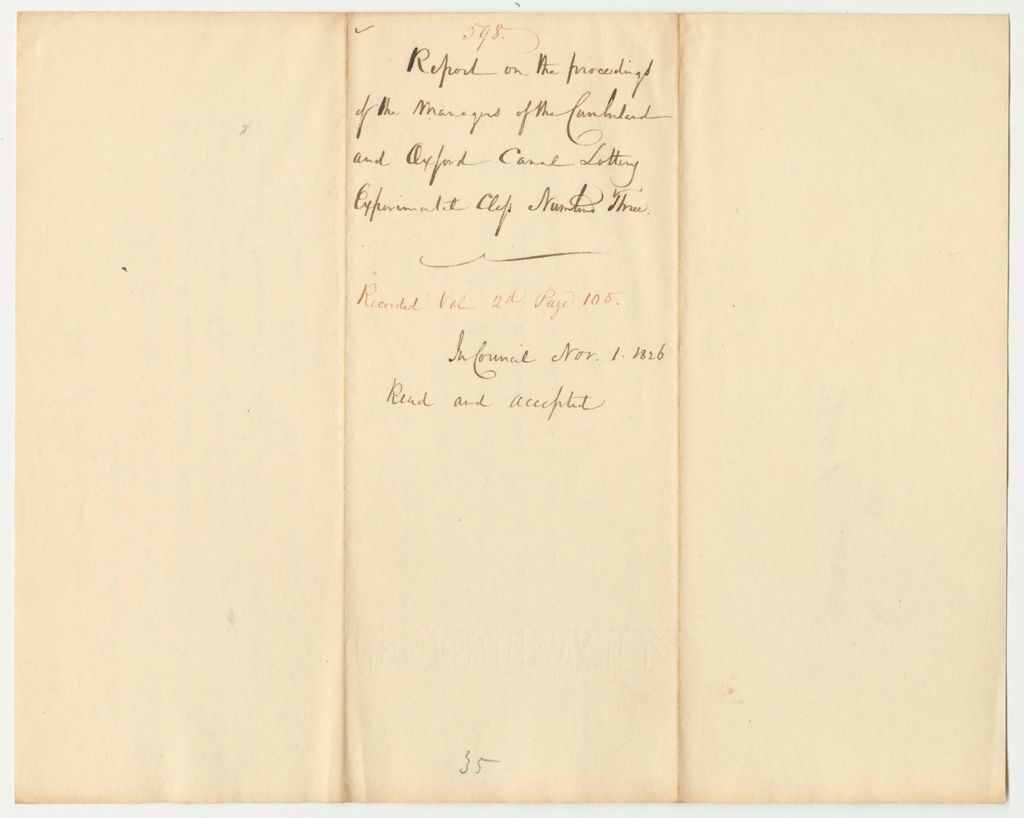 598.
Report on the proceedings
of the Managers of the Cumberland
and Oxford Canal Lottery
Experimental Class Number Three.
Recorded Vol 2d Page 105.
In Council Nov. 1. 1826
Read and accepted
35